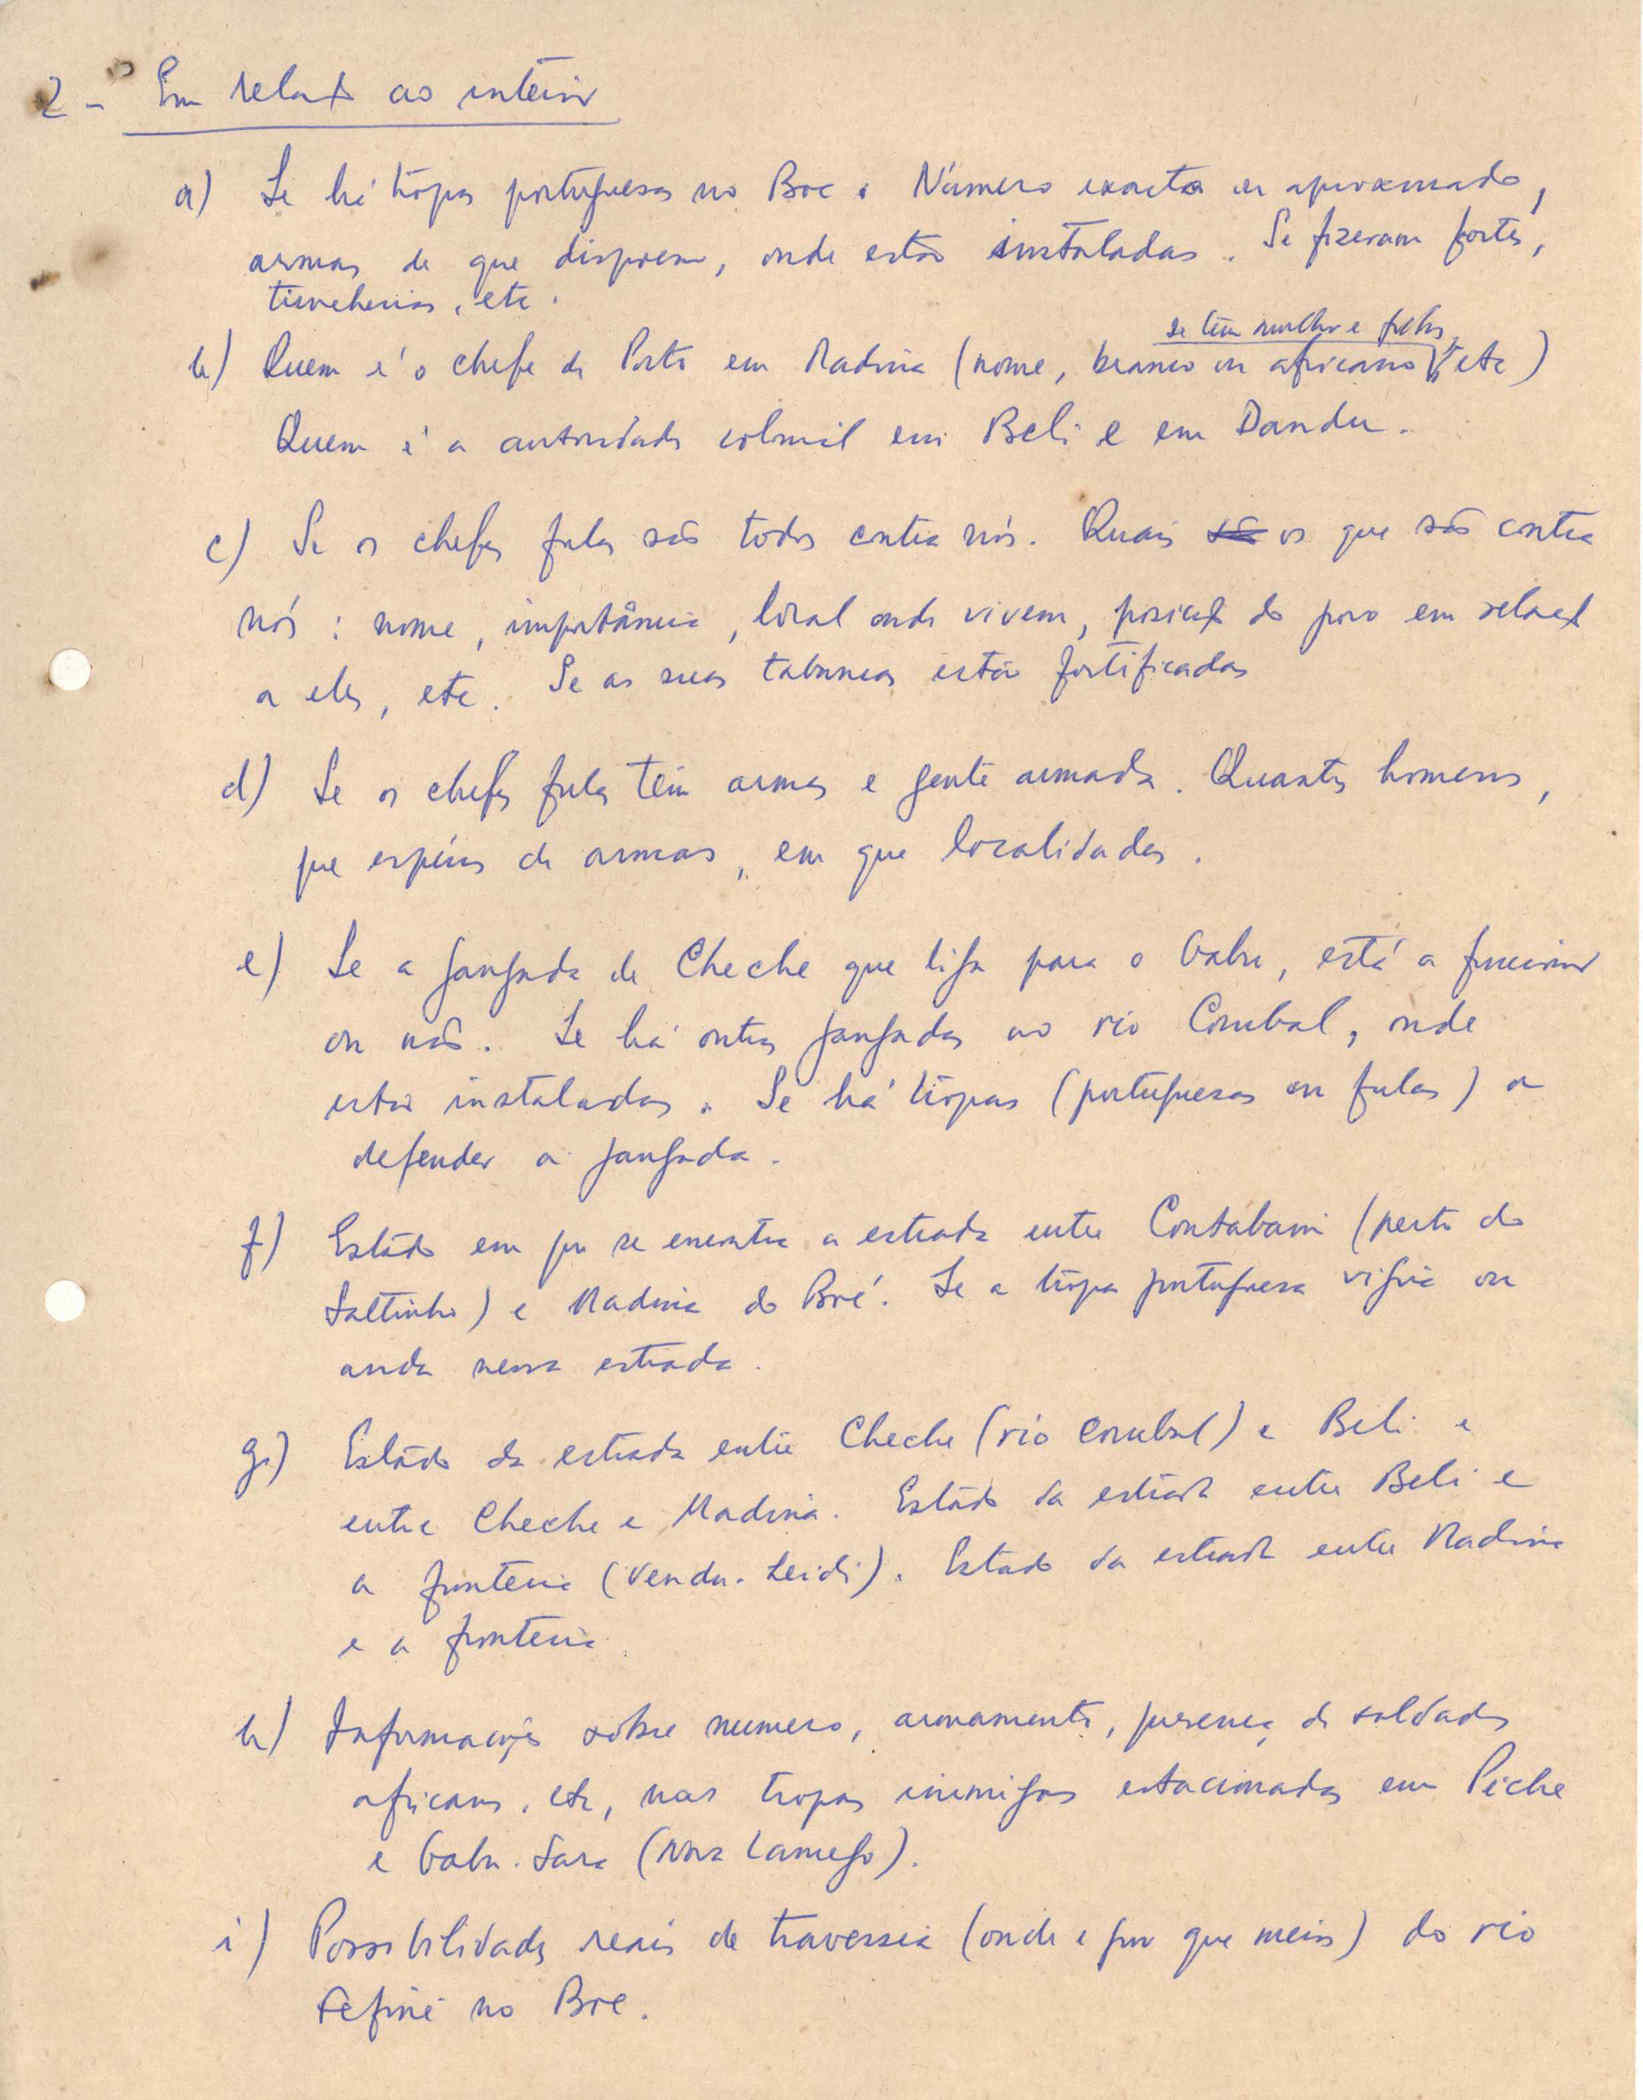 2 - Em relação ao interior
a) Se há tropas portuguesas no Boe. Número exacto ou aproximado,
armas de que dispoem, onde estão instaladas. Se fizeram fortes,
trincheiras, etc.
se têm mulher e filhos,
b) Quem é o chefe de Posto em Madina (nome, branco ou africano, etc)
Quem é a autoridade colonial em Beli e em Dandu.
c) Se os chefes fulas são todos contra nós. Quais são os que são contra
nós: nome, importância, local onde vivem, posição do povo em relação
a eles, etc. Se as suas tabancas estão fortificadas
d) Se os chefes fulas têm armas e gente armada. Quantos homens,
que espécies de armas, em que localidades.
e) Se a jangada de Cheche que liga para o Gabu, está a funcionar
ou não. Se há outras jangadas no rio Corubal, onde
estão instaladas. Se há tropas (portuguesas ou fulas) a
defender a jangada.
f) Estado em que se encontra a estrada entre Contabani (perto do
Saltinho) e Madina do Boé. Se a tropa portuguesa vigia ou
anda nessa estrada.
g) Estado da estrada entre Cheche (rio Corubal) e Beli e
entre Cheche e Madina. Estado da estrada entre Beli e
a fronteira (Vendu-Leidi). Estado da estrada entre Madina
e a fronteira.
h) Informações sobre numero, armamento, presença de soldados
africanos, etc, nas tropas inimigas estacionadas em Piche
e Gabu-Sara (Nova Lamego).
i) Possibilidades reais de travessia (onde e por que meios) do rio
Fefiné no Boe.